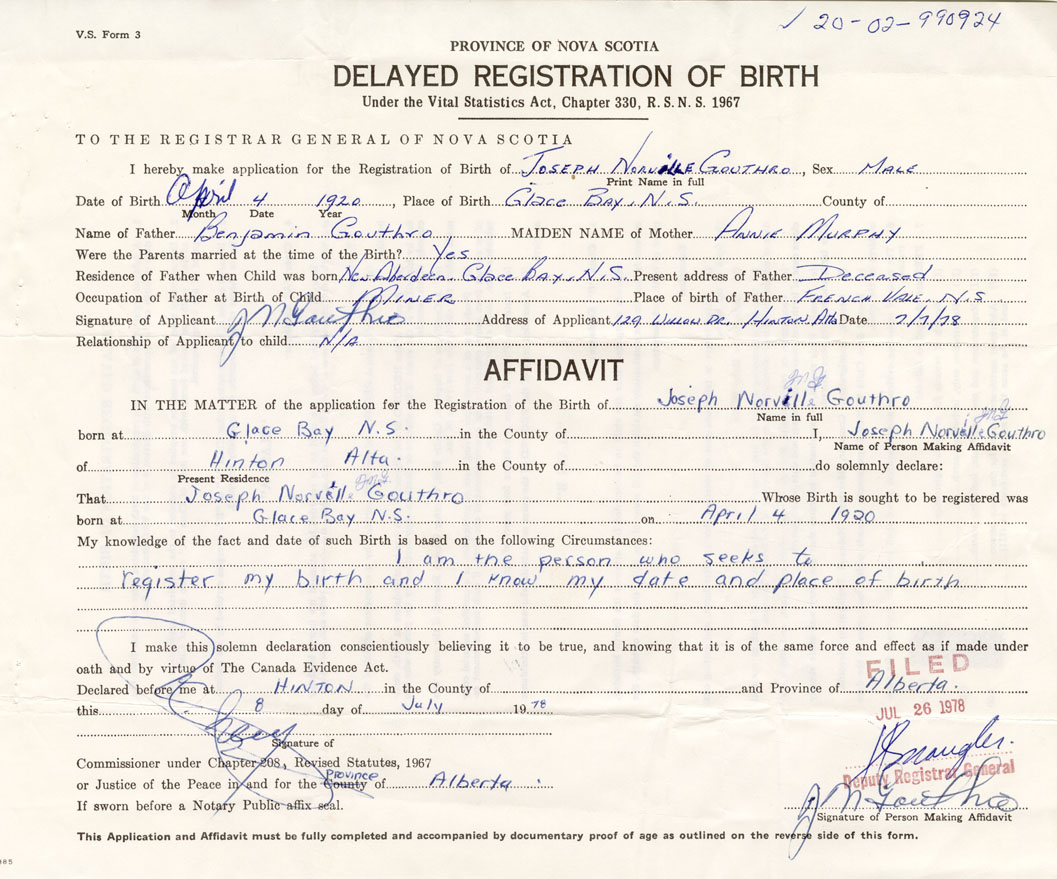 20-02-990924
V.S. Form 3
PROVINCE OF NOVA SCOTIA
DELAYED REGISTRATION OF BIRTH
Under the Vital Statistics Act, Chapter 330, R.S.N.S. 1967
TO THE REGISTRAR GENERAL OF NOVA SCOTIA
I hereby make application for the Registration of Birth of Joseph Norville Gouthro, Sex Male
Print Name in full
Date of Birth April 4 1920, Place of Birth Glace Bay, N.S. County of
Month Date Year
Name of Father Benjamin Gouthro MAIDEN NAME of Mother Annie Murphy
Were the Parents married at the time of the Birth? Yes
Residence of Father when Child was born New Aberdeen Glace Bay, N.S. Present address of Father Deceased
Occupation of Father at Birth of Child Miner Place of birth of Father French Vale, N.S
Signature of Applicant J N Gouthro Address of Applicant 129 Willow Dr. Hinton Alta Date 7/7/78
Relationship of Applicant to child N/A
AFFIDAVIT
IN THE MATTER of the application for the Registration of the Birth of Joseph Norville Gouthro
Name in full
born at Glace Bay N.S. in the County of I, Joseph Norville Gouthro
Name of Person Making Affidavit
of Hinton Alta. in the County of do solemnly declare:
Present Residence
That Joseph Norville Gouthro Whose Birth is sought to be registered was
born at Glace Bay N.S. on April 4 1920
My knowledge of the fact and date of such Birth is based on the following Circumstances:
I am the person who seeks to
register my birth and I know my date and place of birth
I make this solemn declaration conscientiously believing it to be true, and knowing that it is of the same force and effect as if made under
oath and by virtue of The Canada Evidence Act.
FILED
Declared before me at HINTON in the County of and Province of Alberta.
this 8 day of July 1978
JUL 26 1978
Signature of
Commissioner under Chapter 208, Revised Statutes, 1967
Deputy Registrar General
Province
or Justice of the Peace in and for the County of Alberta
If sworn before a Notary Public affix seal.
J N Gouthro
Signature of Person Making Affidavit
This Application and Affidavit must be fully completed and accompanied by documentary proof of age as outlined on the reverse side of this form.